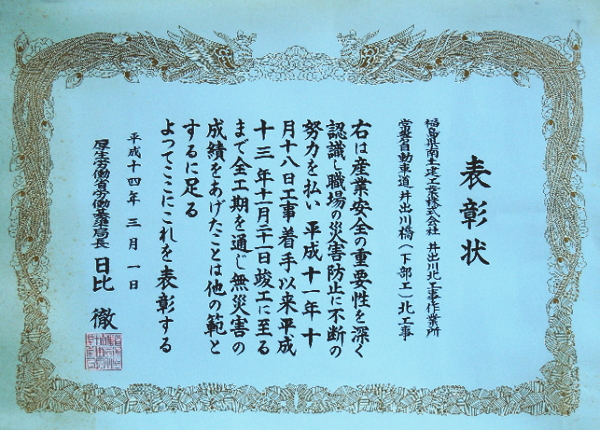 表彰状
福島県南土建工業株式会社 井出川北工事作業所
常磐自動車道井出川橋(下部工)北工事
右は産業安全の重要性を深く
認識し職場の災害防止に不断の
努力を払い平成十一年十
月十八日工事着手以来平成
十三年十一月二十一日竣工に至る
まで全工期を通じ無災害の
成績をあげたことは他の範と
するに足る
よつてここにこれを表彰する
平成十四年三月一日
厚生労働省労働基準局長 日比 徹